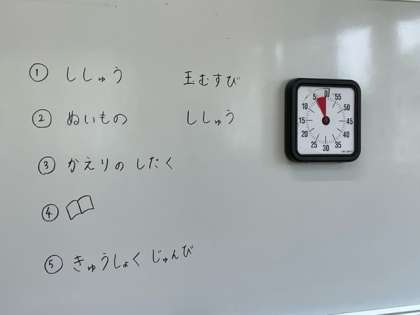 ① ししゅう 玉むすび
② ぬいもの ししゅう
③ かえりの したく
④
⑤ きゅうしょく じゅんび
0 55 50 45 40 35 30 25 20 15 10 5